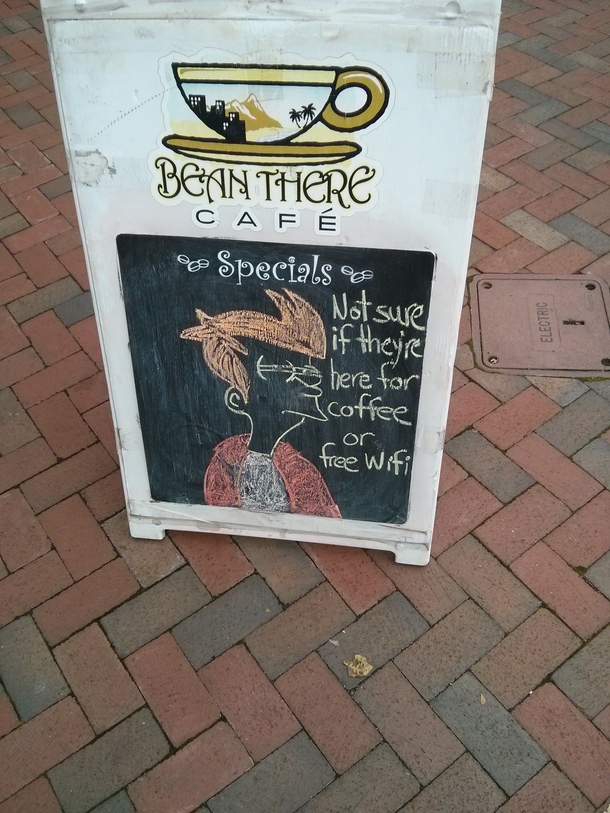 BEAN THERE
CAFÉ
Specials
Not sure
if they're
here for
coffee
or
free Wifi
ELECTRIC